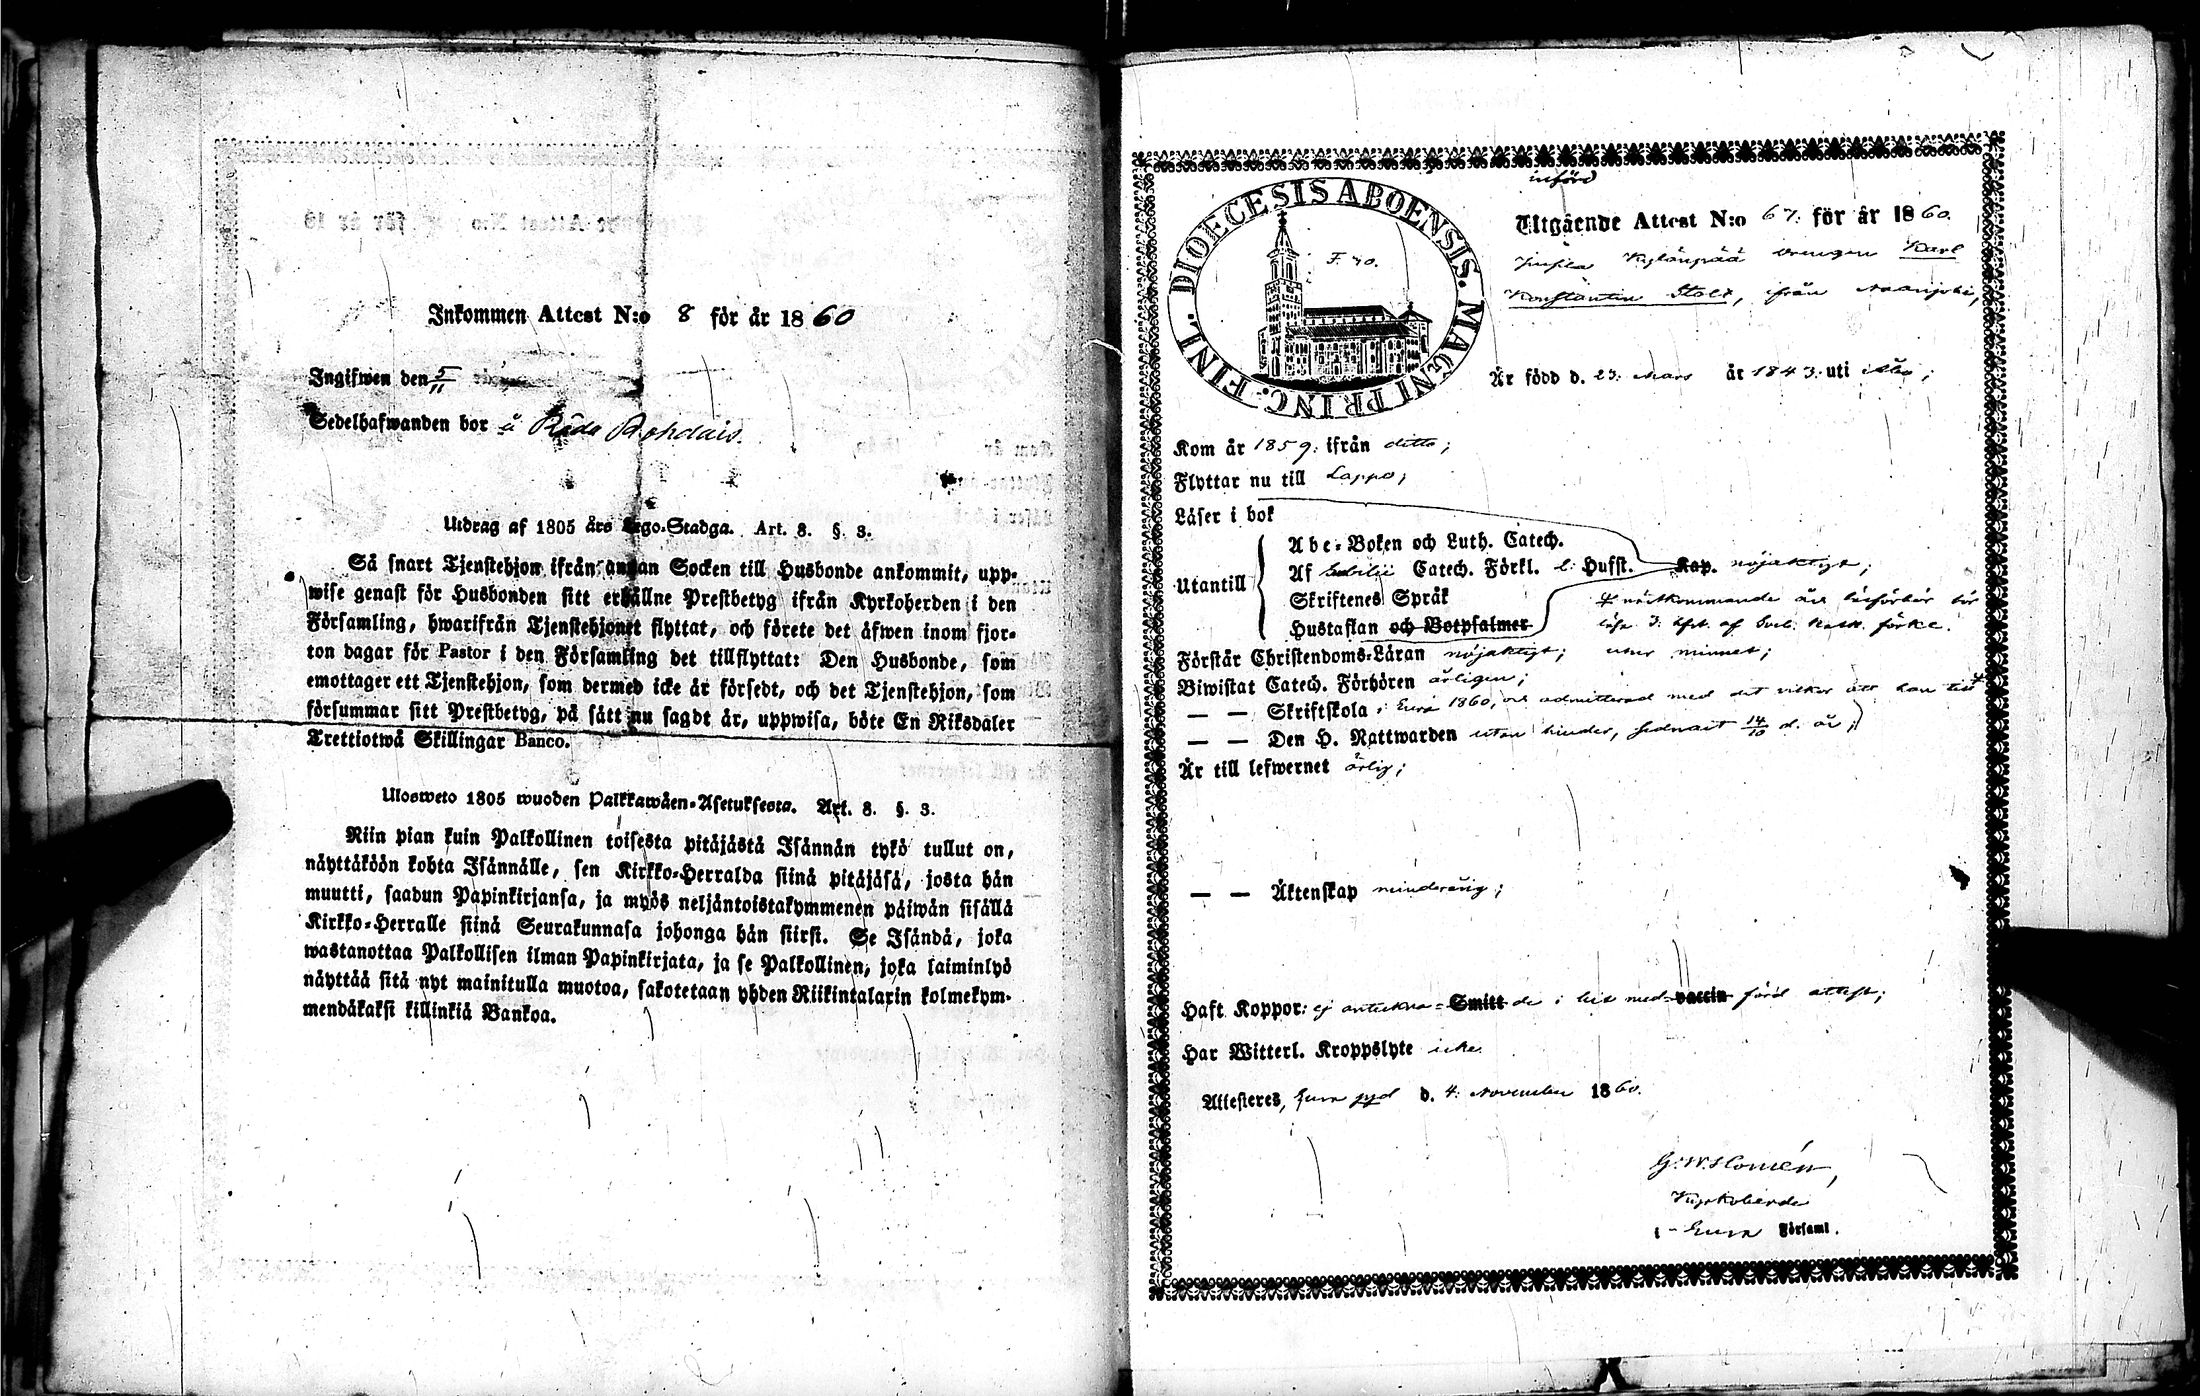 Inkommen Attest N:o 8 för år 1860
Ingifwen den 5/11
Sedelhafwanden bor å Röda
Utdrag af 1805 års Lego-Stadga. Art. 8. §. 3.
Så snart Tjenstehjon ifrån annan Socken till Husbonde ankommit, upp-
wise genast för Husbonden sitt erhållne Prestbetyg ifrån Kyrkoherden i den
Församling, hwarifrån Tjenstehjonet flyttat, och förete det äfwen inom fjor-
ton dagar för Pastor i den Församling det tillflyttat: Den Husbonde, som
emottager ett Tjenstehjon, som dermed icke är försedt, och det Tjenstehjon, som
försummar sitt Prestbetyg, på sätt nu sagdt är, uppwisa, böte En Riksdaler
Trettiotwå Skillingar Banco.
Ulosweto 1805 wuoden Palkkawäen-Asetuksesta. Art. 8. §. 3.
Niin pian kuin Palkollinen toisesta pitäjästä Isännän tykö tullut on,
näyttäköön kohta Isännälle, sen Kirkko-Herralda siinä pitäjäsä, josta hän
muutti, saadun Papinkirjansa, ja myös neljäntoistakymmenen päiwän sisällä
Kirkko-Herralle siinä Seurakunnasa johonga hän siirsi. Se Isändä, joka
wastanottaa Palkollisen ilman Papinkirjata, ja se Palkollinen, joka laiminlyö
näyttää sitä nyt mainitulla muotoa, sakotetaan yhden Riikintalarin kolmekym-
mendäkaksi killinkiä Bankoa.
DIOECESIS ABOENSIS. MAGNI PRINC. FINL.
F. 40.
införd
Utgående Attest N:o 67. för år 1860.
drengen Karl
Konstantin Stolt, ifrån
Är född d. 23. Mars år 1843. uti Åbo;
Kom år 1859. ifrån ditto;
Flyttar nu till Lappo;
Läser i bok
Abc-Boken och Luth. Catech.
Utantill
Af Svebilii Catech. Förkl. l. Hufst. Kap. nöjaktigt;
Skriftenes Språk
# nästkommande års läsförhör bör
Hustaflan och Botpsalmer
läsa 3. Hst. af Sveb. Kat. förkl.
Förstår Christendoms-Läran nöjaktigt; utur minnet;
Biwistat Catech. Förhören årligen;
— — Skriftskola i Eura 1860, och admitterad med det vilkor att han till #
— — Den H. Nattwarden utan hinder, sednast 14/10 d. år;
Är till lefwernet ärlig;
— — Äktenskap minderårig;
Haft Koppor: ej anteckna- Smitt de i hit med vaccin förd attest;
Har Witterl. Kroppslyte icke.
Attesteres, Eura pgd d. 4. November 1860.
G. W. Homén,
Kyrkoherde
i Eura Församl.